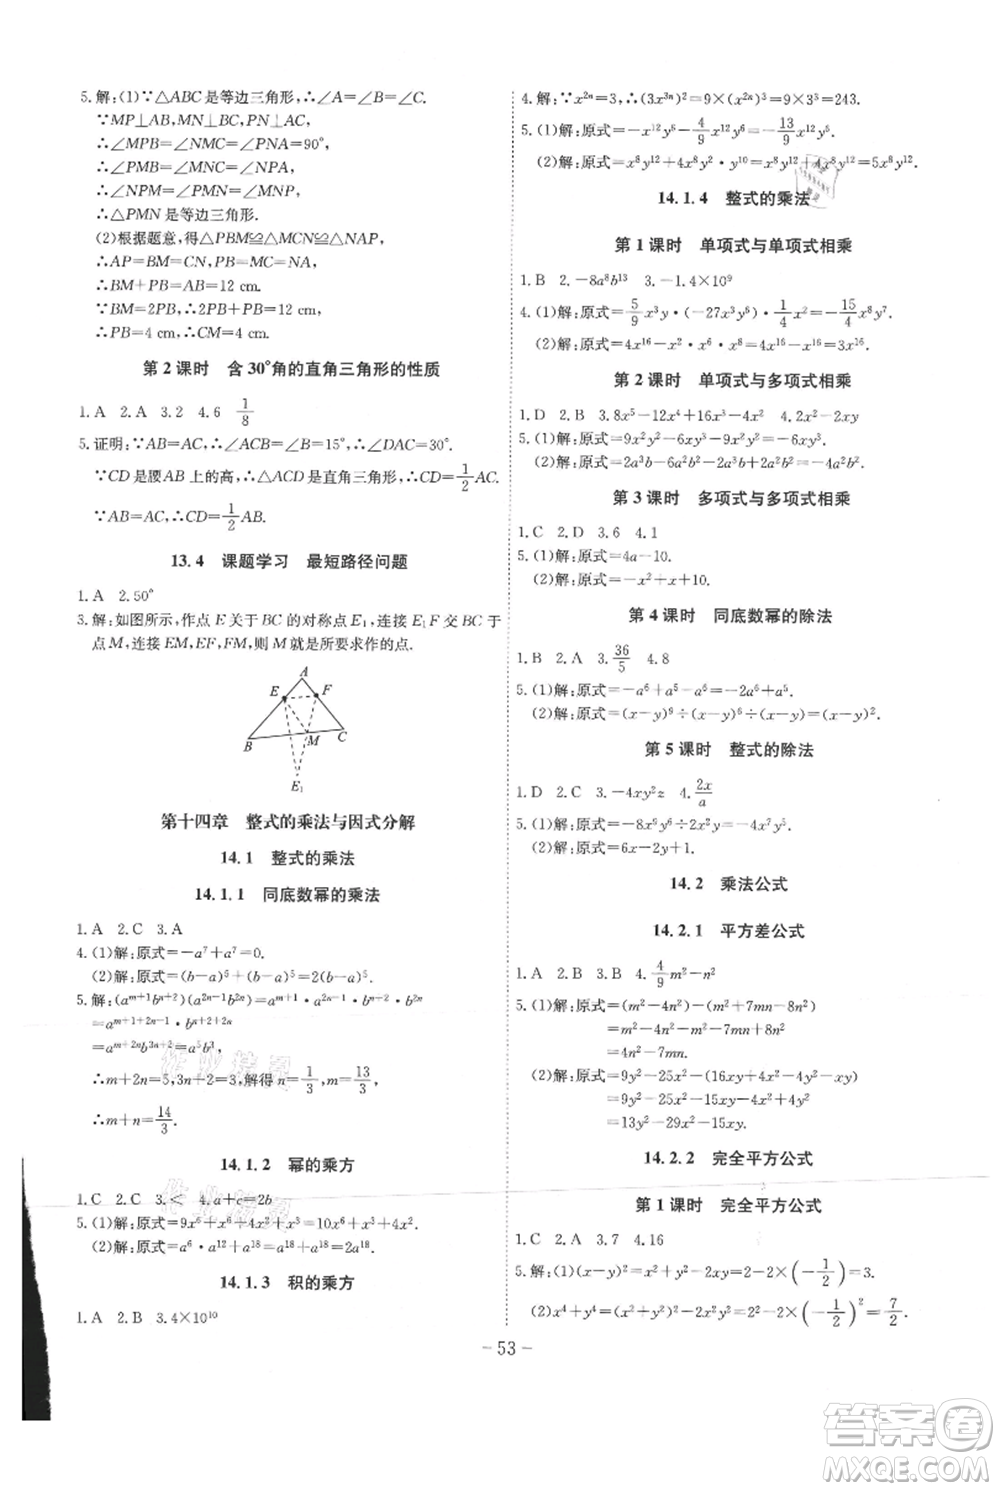 5.解:(1)∵△ABC是等边三角形,∴∠A=∠B=∠C.
∵MP⊥AB,MN⊥BC,PN⊥AC,
∴∠MPB=∠NMC=∠PNA=90°,
∴∠PMB=∠MNC=∠NPA,
∴∠NPM=∠PMN=∠MNP,
∴△PMN是等边三角形.
(2)根据题意,得△PBM≌△MCN≌△NAP,
∴AP=BM=CN,PB=MC=AN,
∴BM+PB=AB=12 cm.
∵BM=2PB,∴2PB+PB=12 cm,
∴PB=4 cm,∴CM=4 cm.
第2课时 含30°角的直角三角形的性质
1.A 2.A 3.2 4.6 1/8
5.证明:∵AB=AC,∴∠ACB=∠B=15°,∴∠DAC=30°.
∵CD是腰AB上的高,∴△ADC是直角三角形,∴CD=1/2AC.
∵AB=AC,∴CD=1/2AB.
13.4 课题学习 最短路径问题
1.A 2.50°
3.解:如图所示,作点E关于BC的对称点E₁,连接E₁F交BC于
点M,连接EM,EF,FM,则M就是所要求作的点.
A
E F
B M C
E₁
第十四章 整式的乘法与因式分解
14.1 整式的乘法
14.1.1 同底数幂的乘法
1.A 2.C 3.A
4.(1)解:原式=-a⁷+a⁷=0.
(2)解:原式=(b-a)⁵+(b-a)⁵=2(b-a)⁵.
5.解:(aᵐ⁺¹bⁿ⁺²)(a²ⁿ⁻¹b²ⁿ)=aᵐ⁺¹·a²ⁿ⁻¹·bⁿ⁺²·b²ⁿ
=aᵐ⁺¹⁺²ⁿ⁻¹·bⁿ⁺²⁺²ⁿ
=aᵐ⁺²ⁿb³ⁿ⁺²=a⁵b³,
∴m+2n=5,3n+2=3,解得n=1/3,m=13/3,
∴m+n=14/3.
14.1.2 幂的乘方
1.C 2.C 3.< 4.a+c=2b
5.(1)解:原式=9x⁶+x⁶+x⁶+x⁶=12x⁶.
(2)解:原式=a⁶·a¹²+a¹⁸=a¹⁸+a¹⁸=2a¹⁸.
14.1.3 积的乘方
1.A 2.B 3.4×10¹⁰
4.解:∵x²ⁿ=3,∴(3x³ⁿ)²=9×(x²ⁿ)³=9×3³=243.
5.(1)解:原式=-x¹²y⁶-4/9x¹²y⁶=-13/9x¹²y⁶.
(2)解:原式=x⁸y¹²+4x⁸y²·y¹⁰=x⁸y¹²+4x⁸y¹²=5x⁸y¹².
14.1.4 整式的乘法
第1课时 单项式与单项式相乘
1.B 2.-8a⁸b¹³ 3.-1.4×10⁹
4.(1)解:原式=5/9x³y·(-27x³y⁶)·1/4·1/4x²=-15/4x⁸y⁷.
(2)解:原式=4x¹⁶-x²·x⁸·x⁶=4x¹⁶-x¹⁶=3x¹⁶.
第2课时 单项式与多项式相乘
1.D 2.C 3.8x⁵-12x⁴+16x³-4x² 4.2x²-xy
5.(1)解:原式=9x²y²-6xy³-9x²y²=-6xy³.
(2)解:原式=2a³b-6a²b²-2a³b+2a²b²=-4a²b².
第3课时 多项式与多项式相乘
1.C 2.D 3.6 4.1
5.(1)解:原式=4a-10.
(2)解:原式=-x²+x+10.
第4课时 同底数幂的除法
1.B 2.A 3.36/5 4.8
5.(1)解:原式=-a⁶+a⁶-a⁶-a⁶=-2a⁶-a⁵.
(2)解:原式=(x-y)⁹÷(x-y)⁶÷(x-y)=(x-y)².
第5课时 整式的除法
1.D 2.C 3.-4xy²z 4.2x/a
5.(1)解:原式=-8x⁹y⁶÷2x²y²=-4x⁷y⁴.
(2)解:原式=6x-2y-1.
14.2 乘法公式
14.2.1 平方差公式
1.A 2.C 3.A 4.4/9m²-n²
5.(1)解:原式=(m²-4n²)-(m²-7mn-8n²)
=m²-4n²-m²+7mn+8n²
=4n²+7mn.
(2)解:原式=9y²-25x²-(9y²+15xy-4x²)
=9y²-25x²-9y²-15xy+4x²
=-21x²-15xy.
14.2.2 完全平方公式
第1课时 完全平方公式
1.C 2.A 3.7 4.16
5.解:(1)(x-y)²=x²+y²-2xy=2-2×(-1/2)=3.
(2)x⁴+y⁴=(x²+y²)²-2x²y²=4-2×(-1/2)²=7/2.
- 53 -
作业精灵
作业精灵
答案圈
MXQE.COM